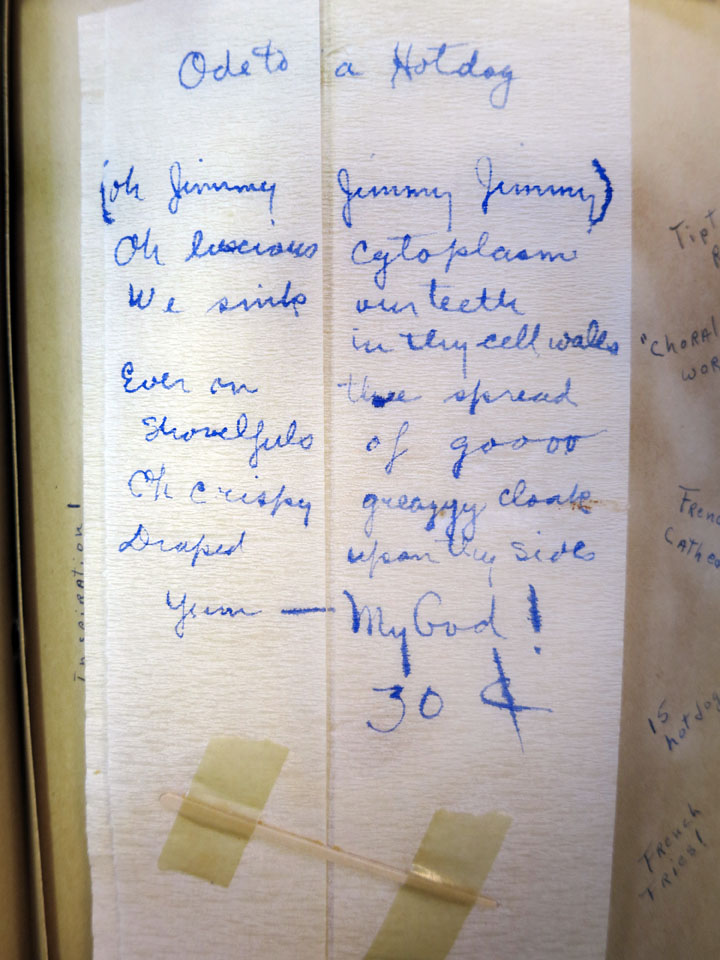 Ode to a Hotdog
(oh Jimmey Jimmy Jimmy)
Oh luscious cytoplasm
We sink our teeth
in thy cell walls
Ever on thee spread
Shovelfuls of goooo
Oh crispy greazzy cloak
Draped upon thy sides
Yum — My God!
30 ¢
Inspiration!
"CHORAL
WOR
FRENC
CATHE
15
hotdog
FRENCH
FRIES!